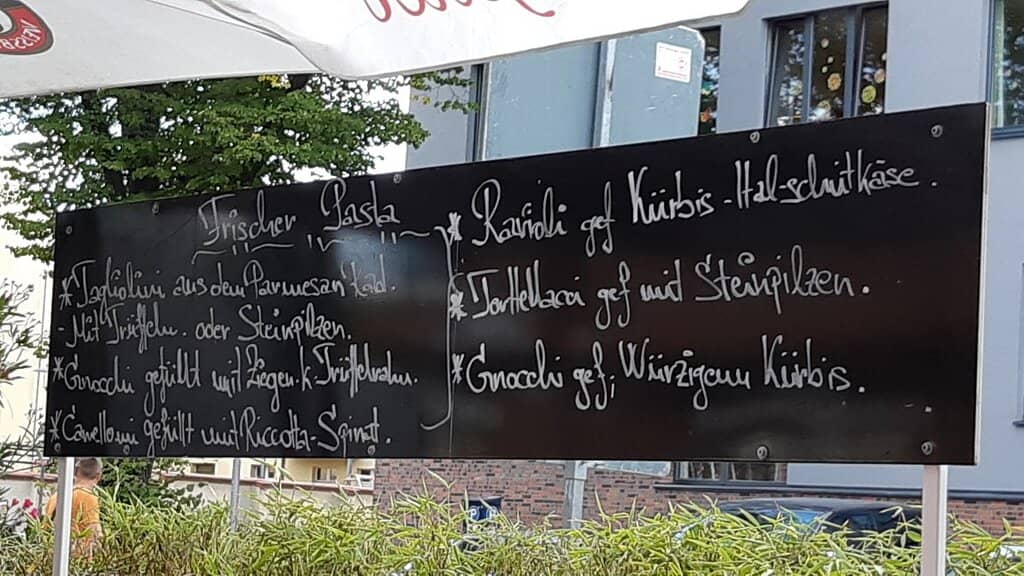 Frischer Pasta
* Tagliolini aus dem Parmesan Rad.
- Mit Trüffeln. oder Steinpilzen.
* Gnocchi gefüllt mit Ziegen.k Trüffelrahm.
* Canelloni gefüllt mit Riccotta-Spinat.
* Ravioli gef Kürbis-Hal-schnitkäse.
* Tortellacci gef mit Steinpilzen.
* Gnocchi gef, Würzigem Kürbis.